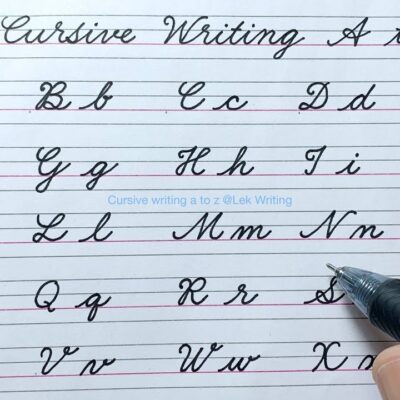 Cursive Writing A
B b C c D d
G g H h I i
Cursive writing a to z @Lek Writing
L l M m N n
Q q R r S
V v W w X